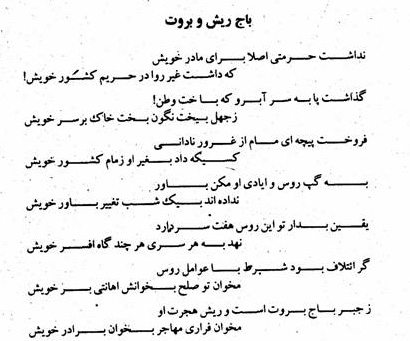 باج ریش و بروت
نداشت حرمتی اصلا برای مادر خویش
که داشت غیر روا در حریم کشور خویش!
گذاشت پا به سر آبرو که باخت وطن!
زجهل بیخت نگون بخت خاک برسر خویش
فروخت پیچه ای مام از غرور نادانی
کسیکه داد بغیر او زمام کشور خویش
به گپ روس و ایادی او مکن باور
نداده اند بیک شب تغییر باور خویش
یقین بدار تو این روس هفت سردارد
نهد به هر سری هر چند گاه افسر خویش
گر ائتلاف بود شرط با عوامل روس
مخوان تو صلح بخوانش اهانتی بر خویش
ز جبر باج بروت است و ریش هجرت او
مخوان فراری مهاجر بخوان برادر خویش